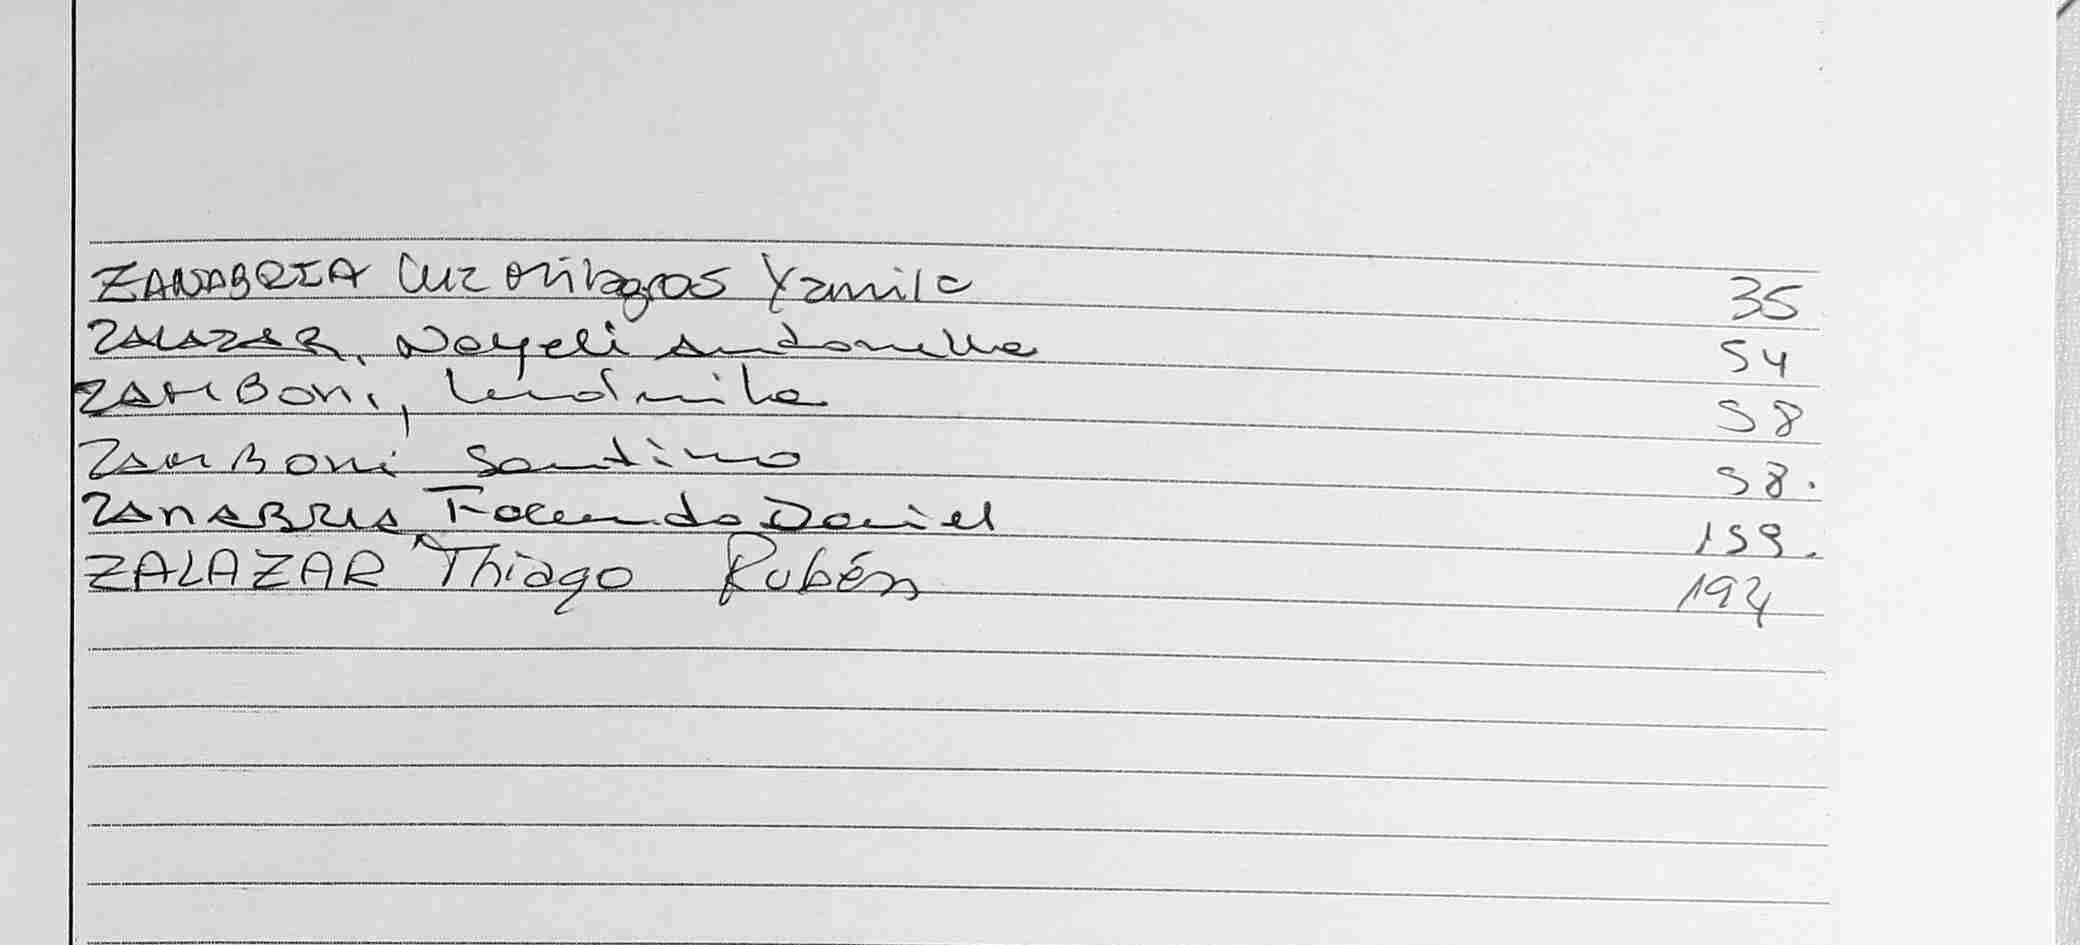 ZANABRIA Luz Milagros Yamila 35
ZALAZAR, Nayeli Antonella 54
ZAMBONI, Ludmila 58
ZAMBONI Santino 58.
ZANABRIA Facundo Daniel 159.
ZALAZAR Thiago Rubén 194